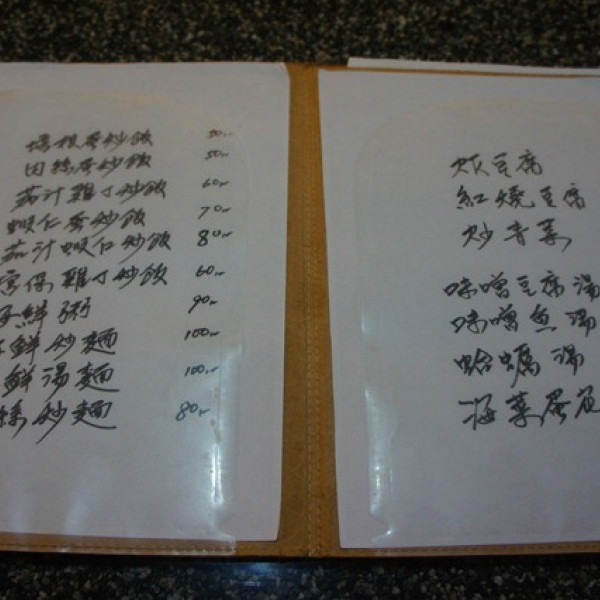 培根蛋炒飯 50
肉絲蛋炒飯 50
茄汁雞丁炒飯 60
蝦仁蛋炒飯 70
茄汁蝦仁炒飯 80
宮保雞丁炒飯 60
鮮粥 90
鮮炒麵 100
鮮湯麵 100
絲炒麵 80
炸豆腐
紅燒豆腐
炒青菜
味噌豆腐湯
味噌魚湯
蛤蠣湯
海菜蛋花